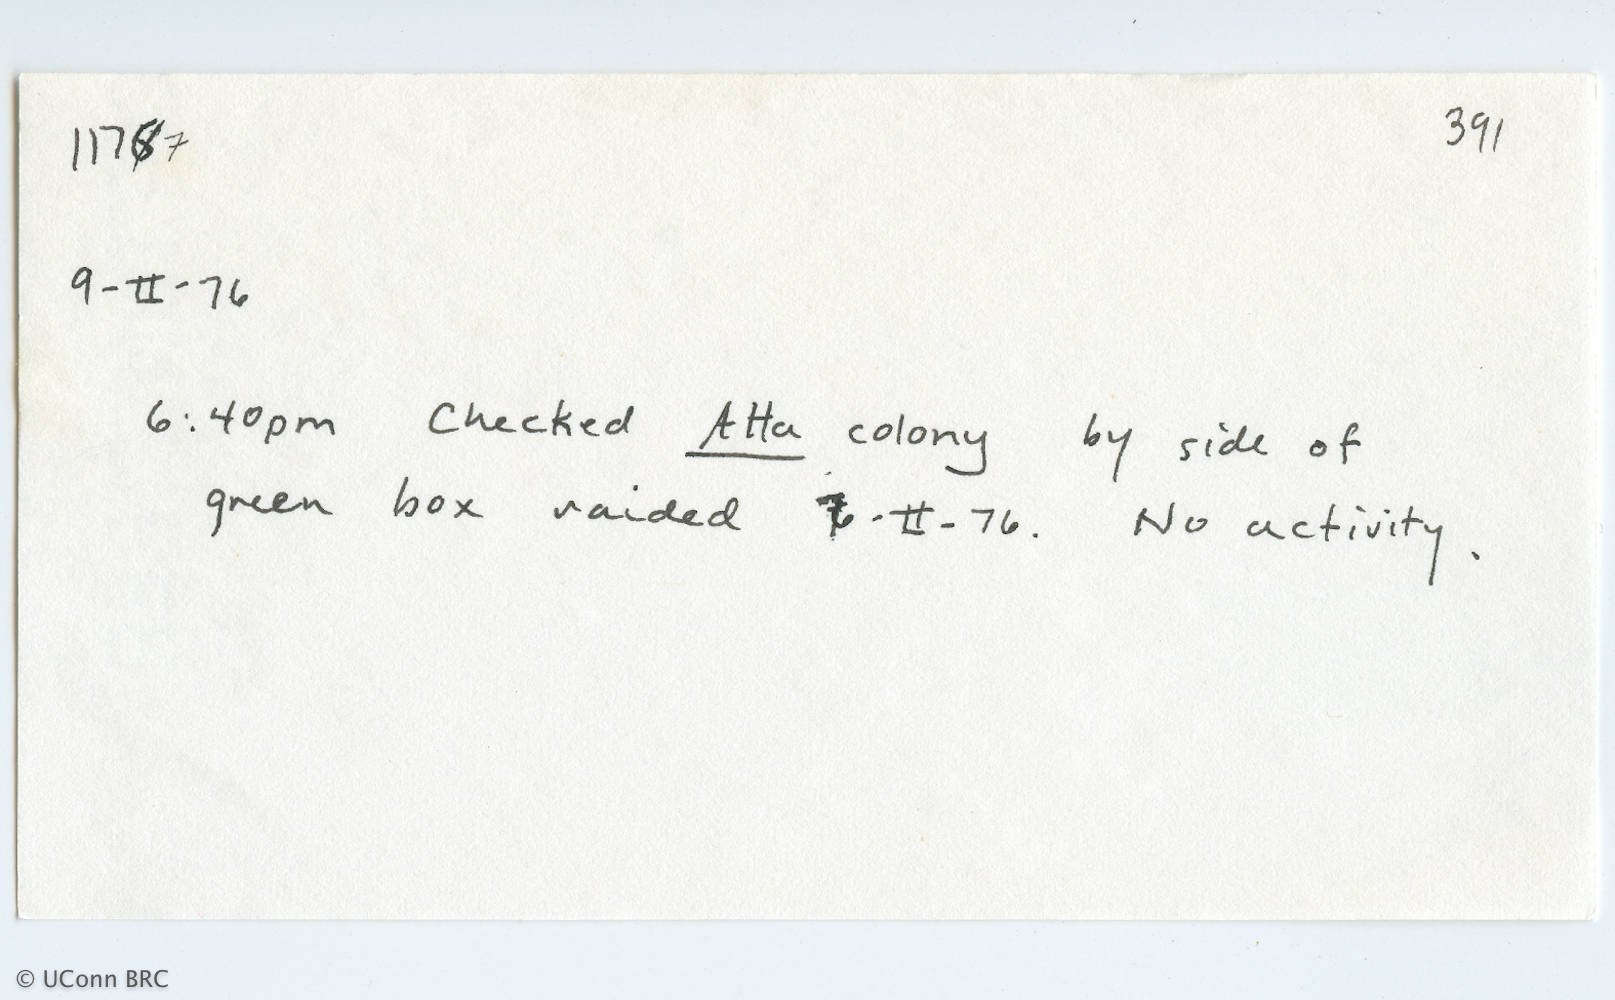 1177 391
9-II-76
6:40pm Checked Atta colony by side of
green box raided 6-II-76. No activity.
© UConn BRC